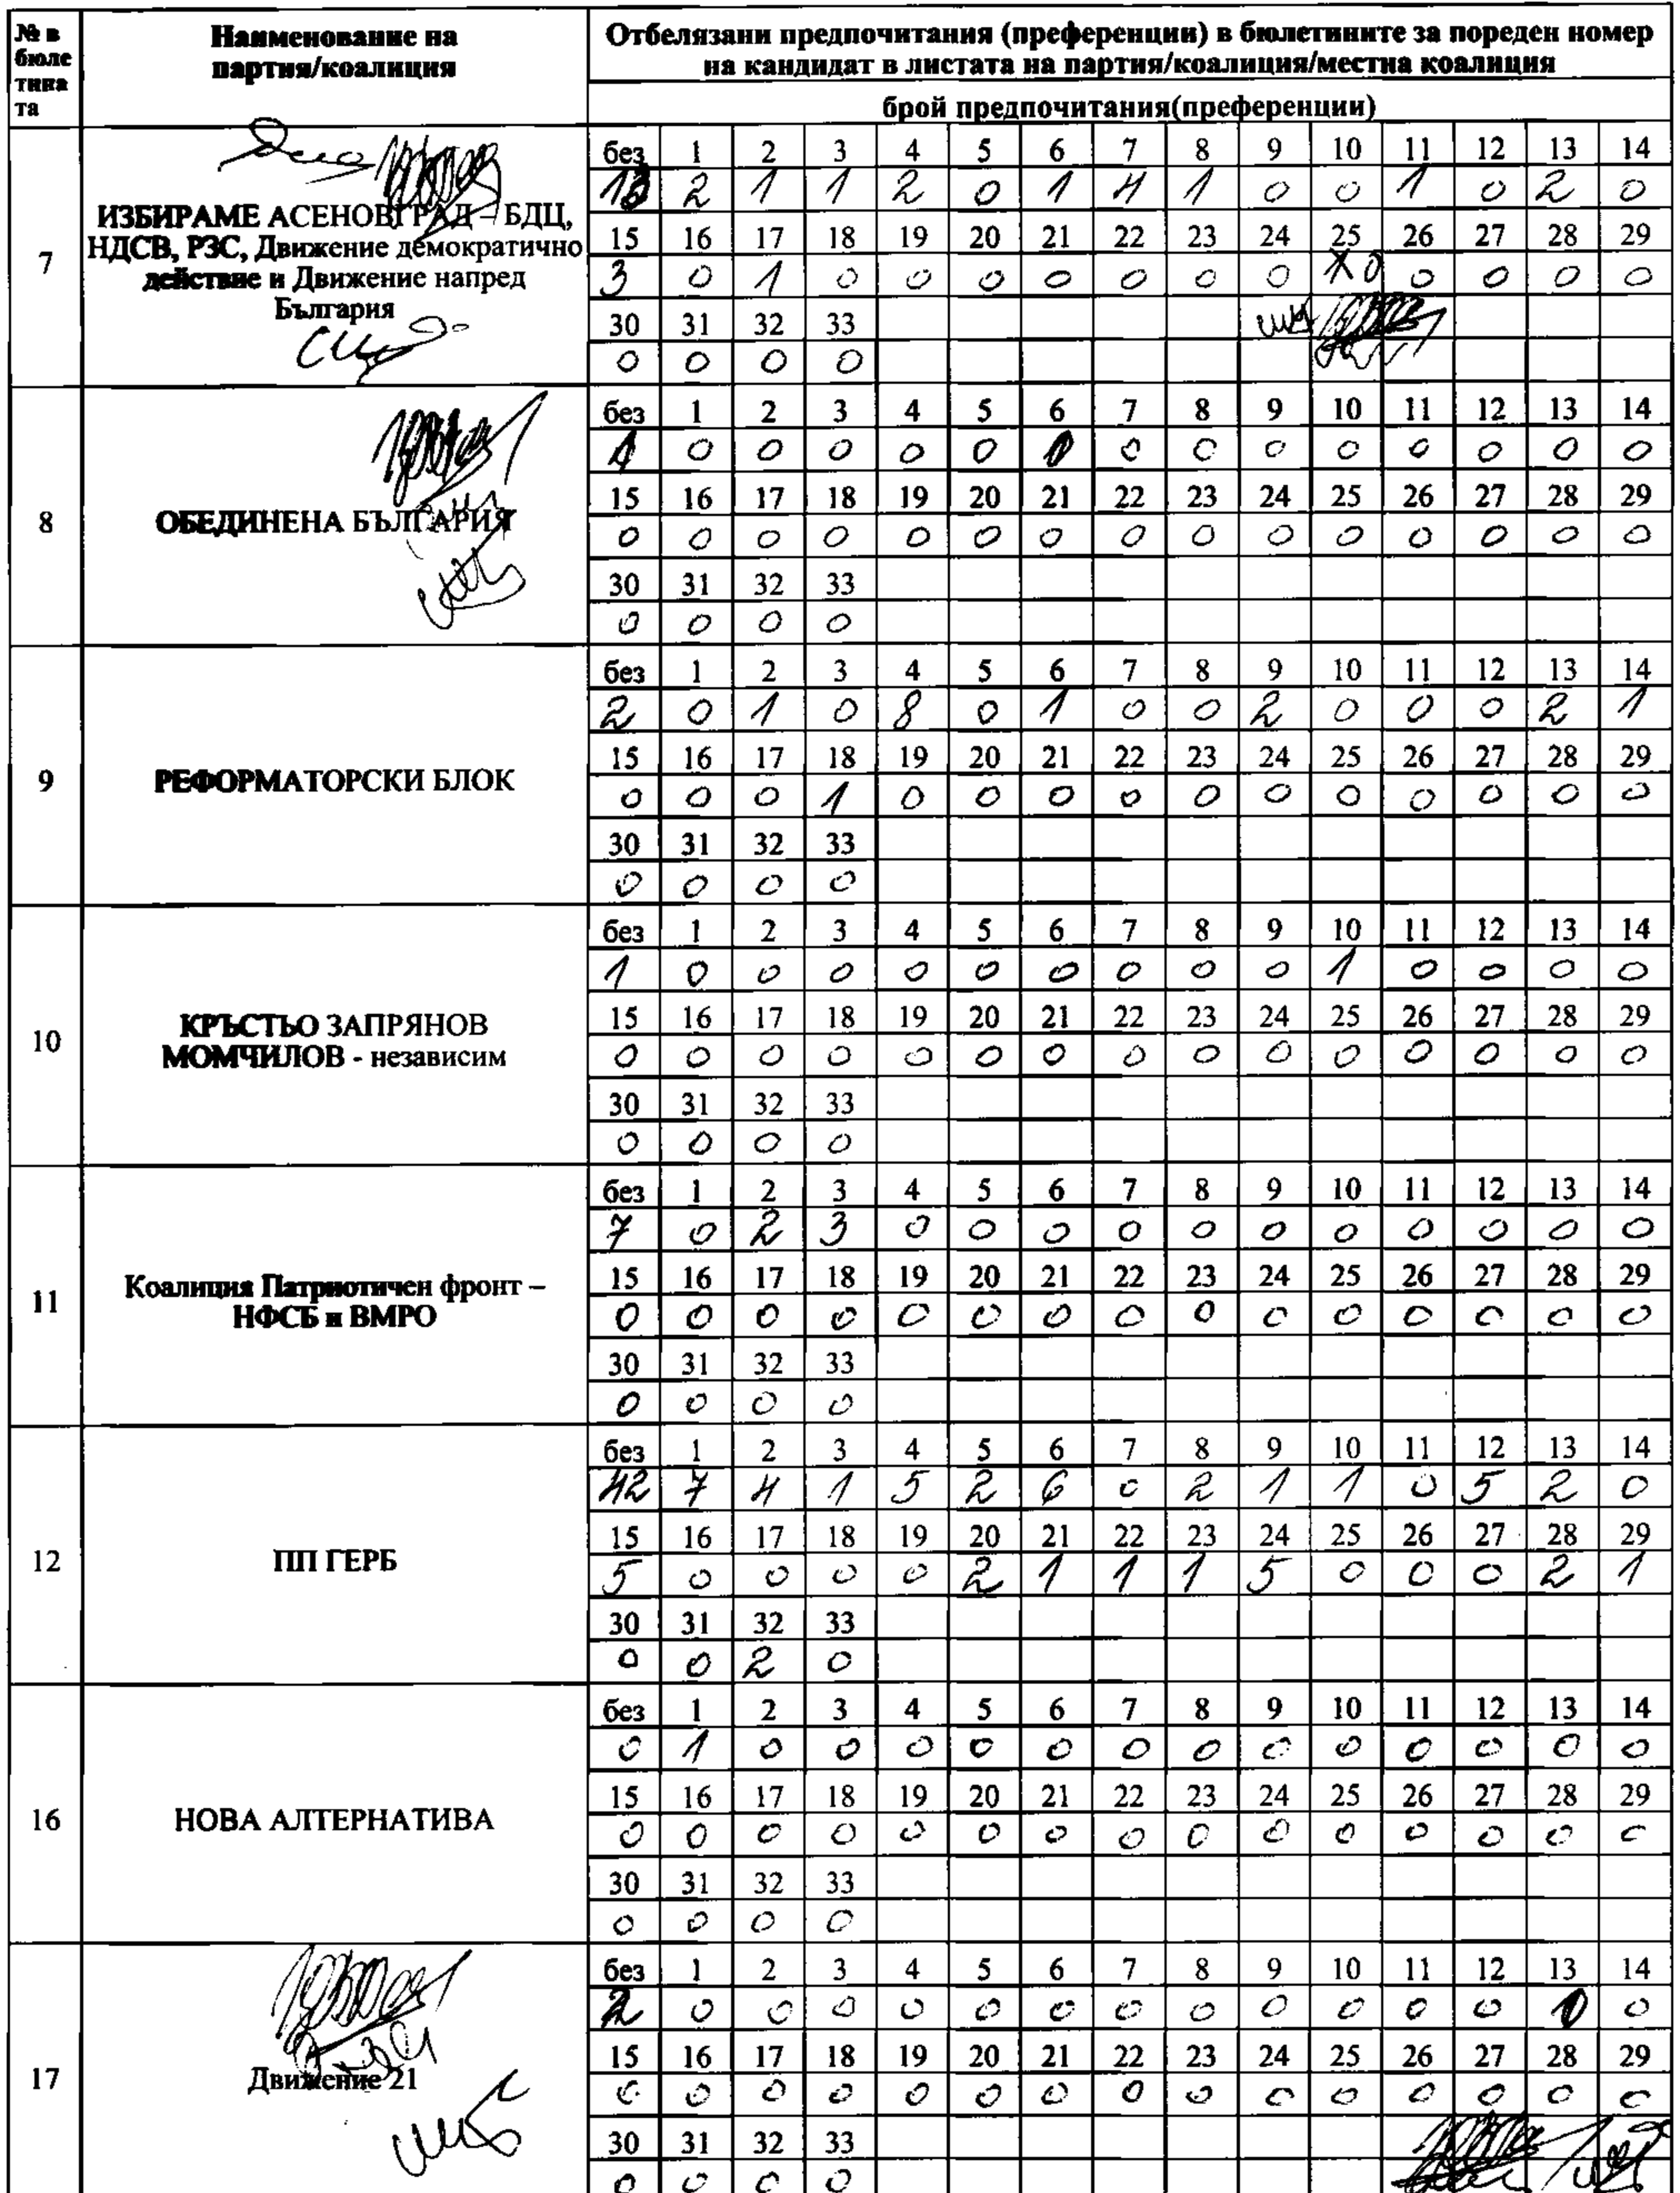 № в бюле тина та
Наименование на партия/коалиция
Отбелязани предпочитания (преференции) в бюлетините за пореден номер
на кандидат в листата на партия/коалиция/местна коалиция
брой предпочитания(преференции)
7
ИЗБИРАМЕ АСЕНОВГРАД – БДЦ,
НДСВ, РЗС, Движение демократично
действие и Движение напред
България
без 1 2 3 4 5 6 7 8 9 10 11 12 13 14
2 1 1 2 0 1 4 1 0 0 1 0 2 0
15 16 17 18 19 20 21 22 23 24 25 26 27 28 29
3 0 1 0 0 0 0 0 0 0 X0 0 0 0 0
30 31 32 33
0 0 0 0
8
ОБЕДИНЕНА БЪЛГАРИЯ
без 1 2 3 4 5 6 7 8 9 10 11 12 13 14
0 0 0 0 0 0 0 0 0 0 0 0 0
15 16 17 18 19 20 21 22 23 24 25 26 27 28 29
0 0 0 0 0 0 0 0 0 0 0 0 0 0 0
30 31 32 33
0 0 0 0
9
РЕФОРМАТОРСКИ БЛОК
без 1 2 3 4 5 6 7 8 9 10 11 12 13 14
2 0 1 0 8 0 1 0 0 2 0 0 0 2 1
15 16 17 18 19 20 21 22 23 24 25 26 27 28 29
0 0 0 1 0 0 0 0 0 0 0 0 0 0 0
30 31 32 33
0 0 0 0
10
КРЪСТЬО ЗАПРЯНОВ
МОМЧИЛОВ - независим
без 1 2 3 4 5 6 7 8 9 10 11 12 13 14
1 0 0 0 0 0 0 0 0 0 1 0 0 0 0
15 16 17 18 19 20 21 22 23 24 25 26 27 28 29
0 0 0 0 0 0 0 0 0 0 0 0 0 0 0
30 31 32 33
0 0 0 0
11
Коалиция Патриотичен фронт –
НФСБ и ВМРО
без 1 2 3 4 5 6 7 8 9 10 11 12 13 14
7 0 2 3 0 0 0 0 0 0 0 0 0 0 0
15 16 17 18 19 20 21 22 23 24 25 26 27 28 29
0 0 0 0 0 0 0 0 0 0 0 0 0 0 0
30 31 32 33
0 0 0 0
12
ПП ГЕРБ
без 1 2 3 4 5 6 7 8 9 10 11 12 13 14
42 7 4 1 5 2 6 0 2 1 1 0 5 2 0
15 16 17 18 19 20 21 22 23 24 25 26 27 28 29
5 0 0 0 0 2 1 1 1 5 0 0 0 2 1
30 31 32 33
0 0 2 0
16
НОВА АЛТЕРНАТИВА
без 1 2 3 4 5 6 7 8 9 10 11 12 13 14
0 1 0 0 0 0 0 0 0 0 0 0 0 0 0
15 16 17 18 19 20 21 22 23 24 25 26 27 28 29
0 0 0 0 0 0 0 0 0 0 0 0 0 0 0
30 31 32 33
0 0 0 0
17
Движение 21
без 1 2 3 4 5 6 7 8 9 10 11 12 13 14
2 0 0 0 0 0 0 0 0 0 0 0 0 0
15 16 17 18 19 20 21 22 23 24 25 26 27 28 29
0 0 0 0 0 0 0 0 0 0 0 0 0 0 0
30 31 32 33
0 0 0 0